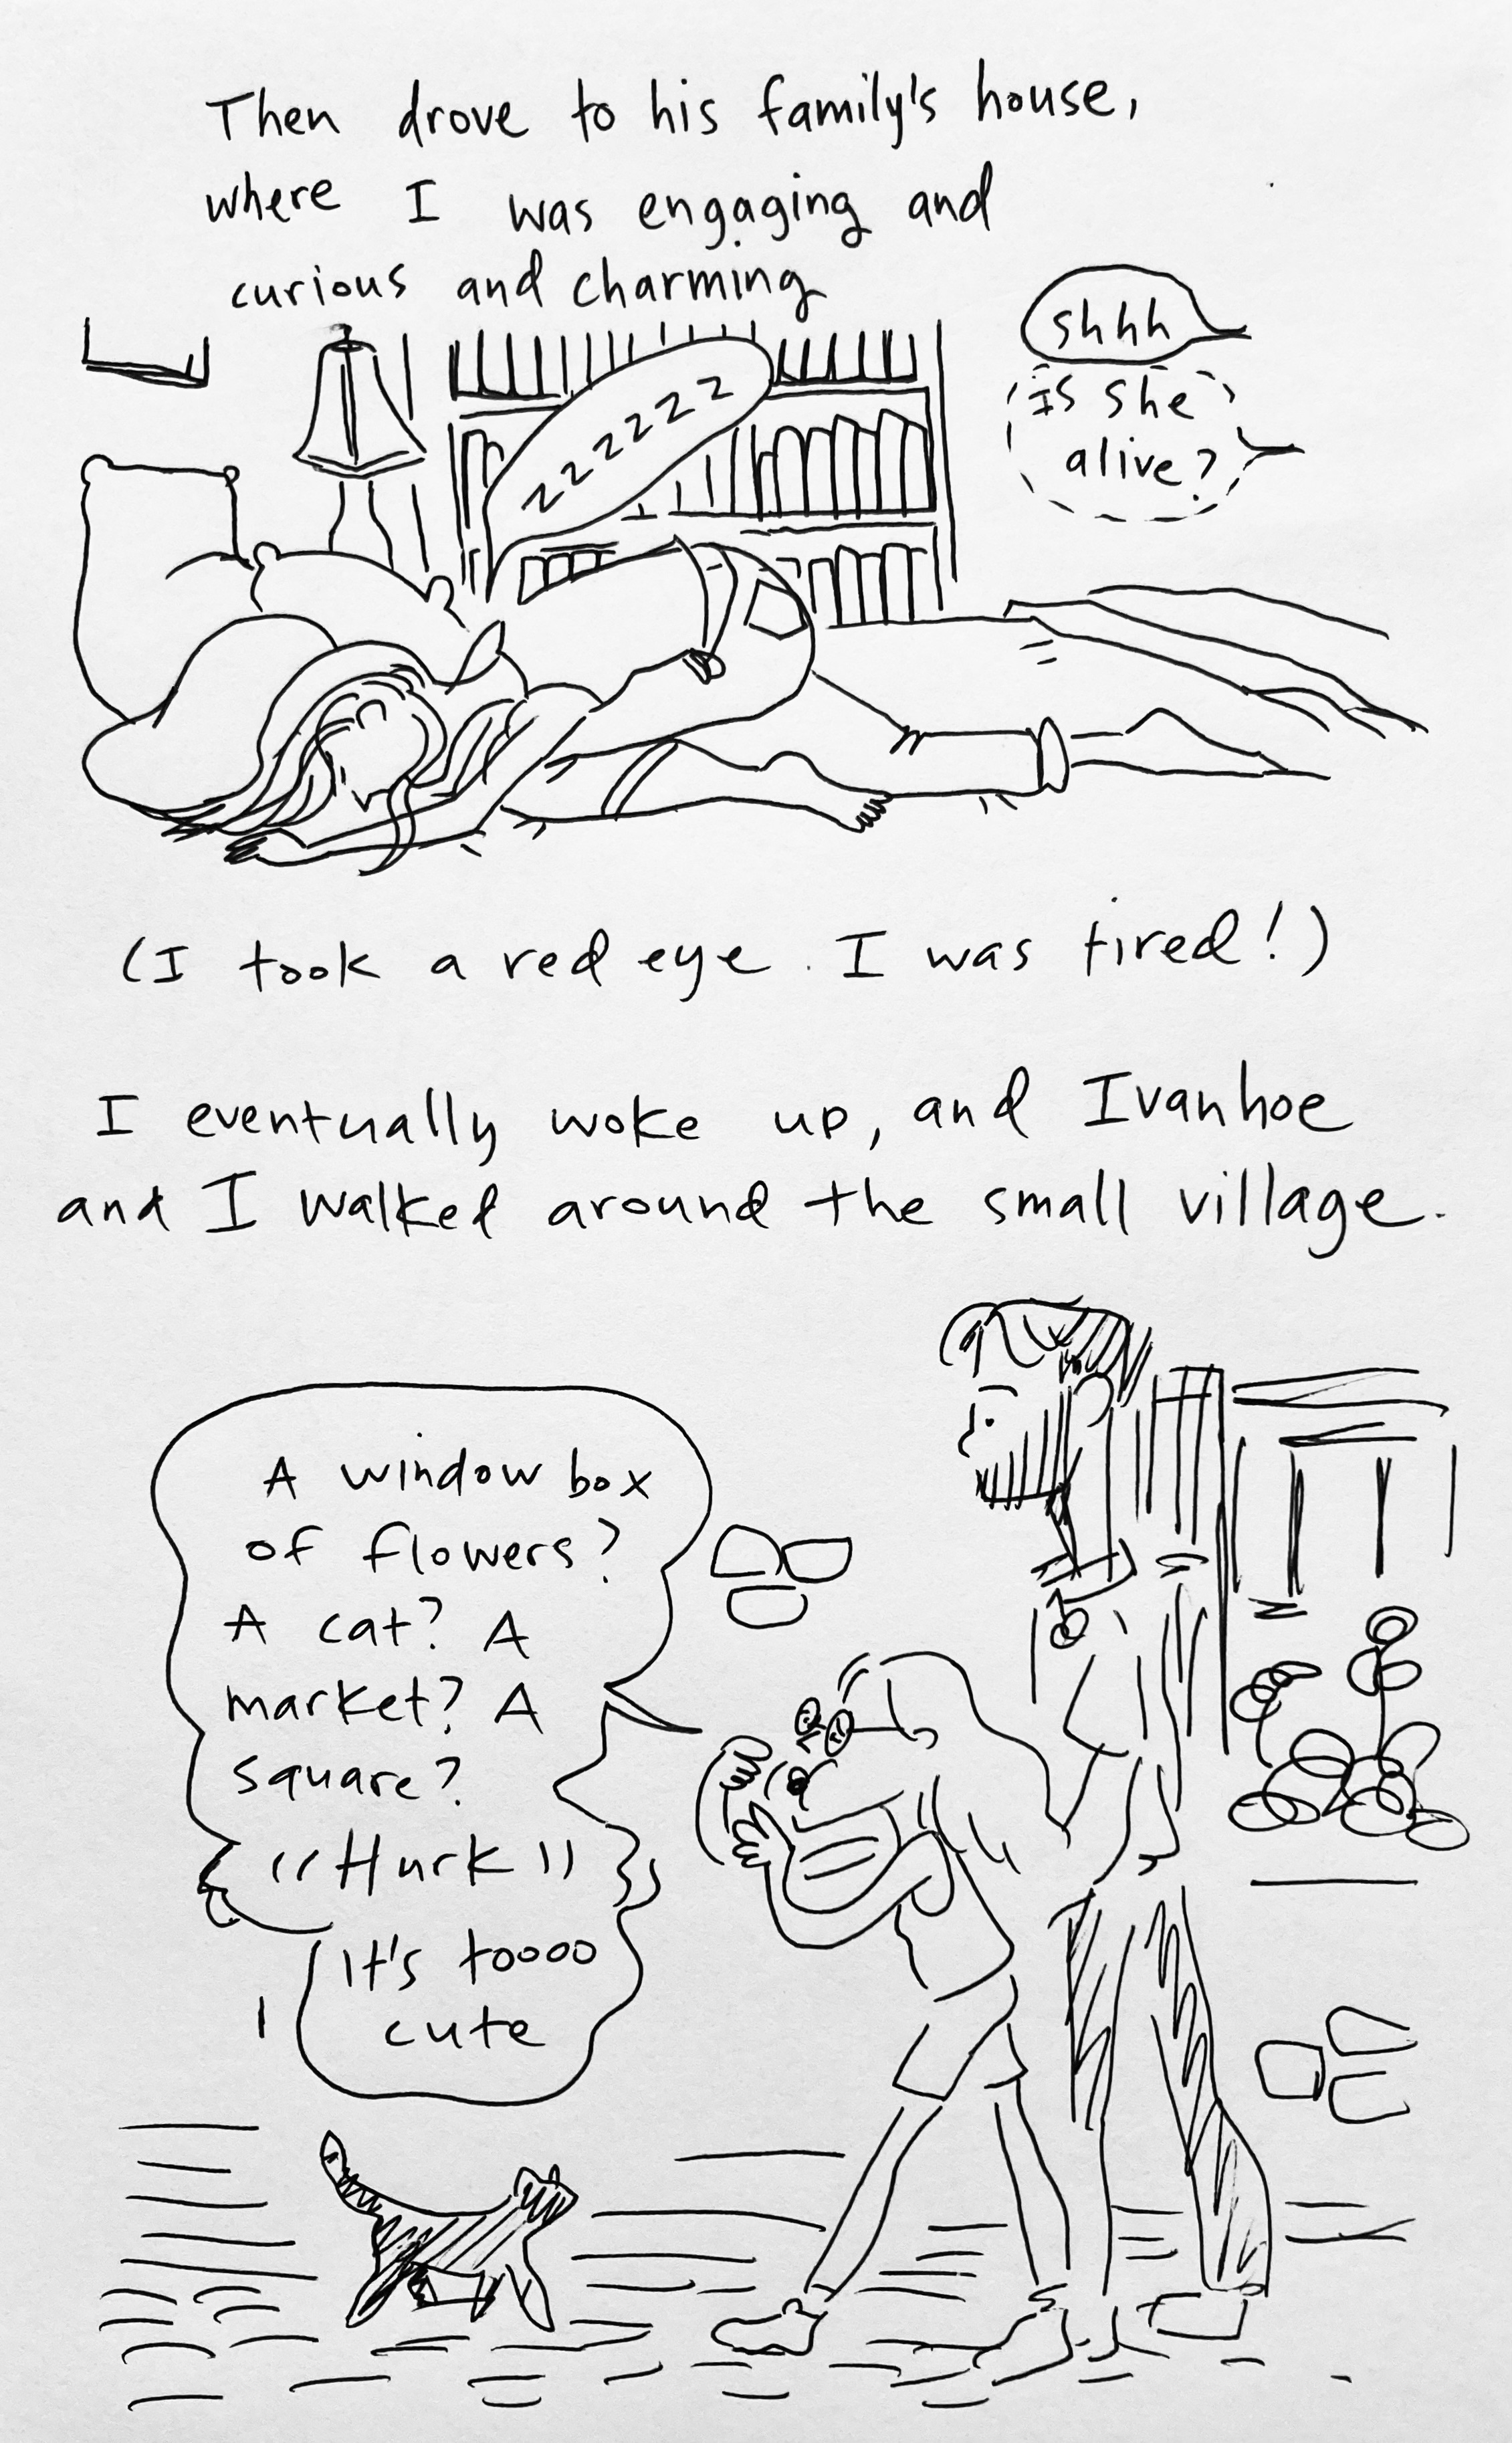 Then drove to his family's house,
where I was engaging and
curious and charming
shhh
Is she
alive?
zzzzzz
(I took a red eye. I was tired!)
I eventually woke up, and Ivanhoe
and I walked around the small village.
A window box
of flowers?
A cat? A
market? A
square?
"Hurk"
It's toooo
cute